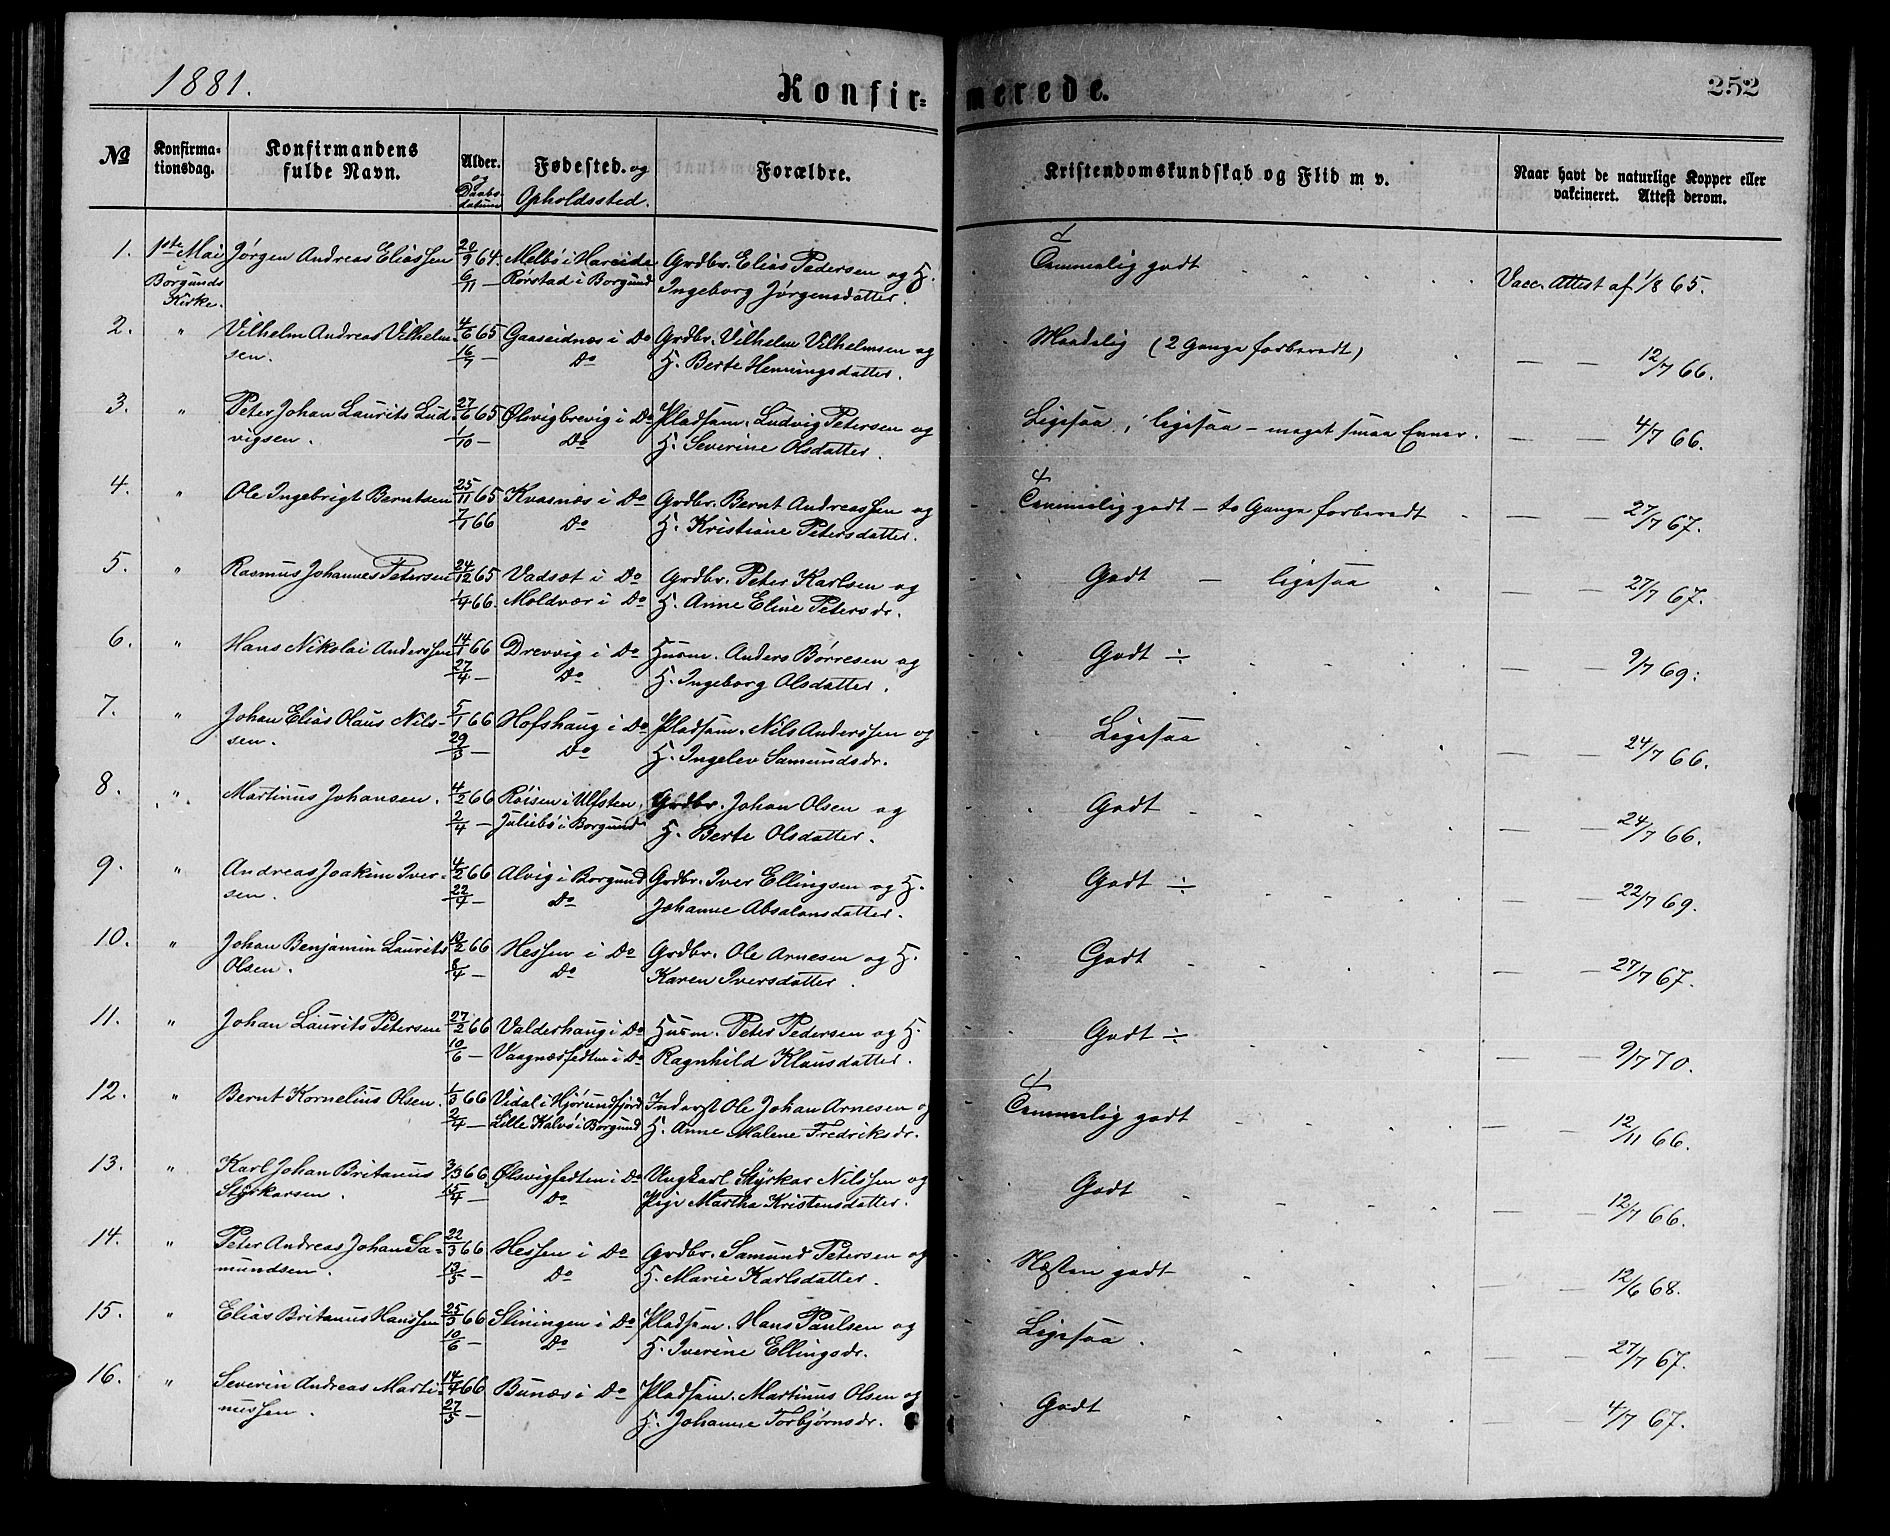 1881.
Konfir=
merede.
252
№
Konfirma-
tionsdag.
Konfirmandens
fulde Navn.
Alder.
og
Daabs-
datum
Fødested. og
Opholdssted.
Forældre.
Kristendomskundskab og Flid m v.
Naar havt de naturlige Kopper eller
vakcineret. Attest derom.
1. 1ste Mai Jørgen Andreas Eliassen 20/9 64. Melbø i Hareide Grdbr. Elias Pedersen og H. Temmelig godt Vacc. Attest af 1/8 65.
i Borgunds 6/11 — Rørstad i Borgund Ingeborg Jørgensdatter.
Kirke.
2. " Vilhelm Andreas Vilhelm- 4/6 65 Gaaseidnæs i Do Grdbr. Vilhelm Vilhelmsen og Maadelig (2 Gange forberedt) — — 12/7 66.
sen. 16/7 — Do H. Berte Henningsdatter.
3. " Peter Johan Laurits Lud- 27/6 65 Ølsvigbrevig i Do Pladsm. Ludvig Petersen og Ligesaa, ligesaa - meget smaa Evner. — — 4/7 66.
vigsen. 1/10 — Do H. Severine Olsdatter.
4. " Ole Ingebrigt Berntsen 25/11 65 Kvasnæs i Do Grdbr. Bernt Andreassen og Temmelig godt - to Gange forberedt — — 27/7 67.
7/1 66 Do H. Kristiane Petersdatter.
5. " Rasmus Johannes Petersen 24/12 65 Vadsæt i Do Grdbr. Peter Karlsen og Godt — ligesaa — — 27/7 67.
1/4 66. Moldvær i Do H. Anne Eline Petersdr.
6. " Hans Nikolai Anderssen 14/1 66 Drevvig i Do Husm. Anders Børresen og Godt ÷ — — 9/7 69.
27/4 — Do H. Ingeborg Olsdatter.
7. " Johan Elias Olaus Nils- 5/1 66 Hofshaug i Do Pladsm. Nils Anderssen og Ligesaa — — 24/7 66.
sen. 29/3 — Do H. Ingelev Samundsdr.
8. " Martinus Johansen. 4/2 66 Røisen i Ulfsten, Grdbr. Johan Olsen og Godt — — 24/7 66.
2/4 — Juliebø i Borgund H. Berte Olsdatter.
9. " Andreas Joakim Iver- 4/2 66 Alvig i Borgund Grdbr. Iver Ellingsen og H. Godt ÷ — — 22/7 69.
sen. 22/4 — Do Johanne Absalonsdatter.
10. " Johan Benjamin Laurits 13/2 66 Hessen i Do Grdbr. Ole Arnesen og H. Godt — — 27/7 67.
Olsen. 8/4 — Do Karen Iversdatter.
11. " Johan Laurits Petersen 27/2 66 Valderhaug i Do Husm. Peter Pedersen og H. Godt ÷ — — 9/7 70.
10/6 — Vaagnæsfedten i Do Ragnhild Klausdatter.
12. " Bernt Kornelius Olsen. 1/3 66 Vidal i Hjørundfjord Inderst Ole Johan Arnesen og Temmelig godt — — 12/11 66.
2/4 — Lille Kalvø i Borgund H. Anne Malene Fredriksdr.
13. " Karl Johan Britanus 3/3 66 Ølsvigfedten i Do Ungkarl Styrkar Nilssen og Godt — — 12/7 66.
Styrkarsen. 15/4 — Do Pige Martha Kristensdatter.
14. " Peter Andreas Johan Sa- 22/3 66 Hessen i Do Grdbr. Samund Petersen og Næsten godt — — 12/6 68.
mundsen. 13/5 — Do H. Marie Karlsdatter.
15. " Elias Britanus Hanssen 25/3 66 Sliningen i Do Pladsm. Hans Paulsen og Ligesaa. — — 27/7 67.
10/6 — Do H. Iverine Ellingsdr.
16. " Severin Andreas Marti- 14/4 66 Bunæs i Do Pladsm. Martinus Olsen og Godt — — 4/7 67.
nussen. 27/5 — H. Johanne Torbjørnsdr.